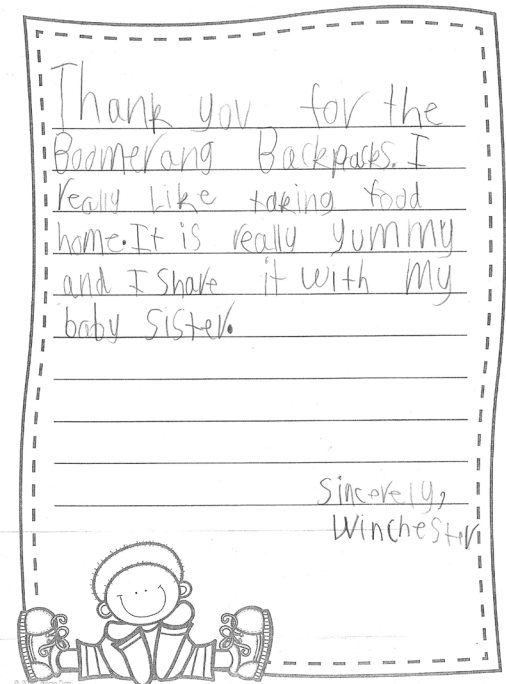 Thank you for the
Boomerang Backpacks. I
really like taking food
home. It is really yummy
and I share it with my
baby sister.
Sincerely,
Winchester